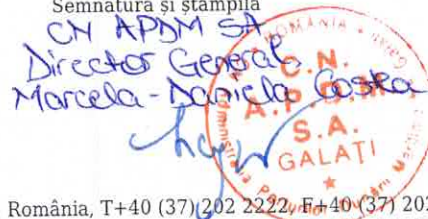 Semnătura și ștampila
CN APDM SA
Director General,
Marcela-Daniela Costea
ROMÂNIA
C.N.
A.P.D.M.
S.A.
GALAȚI
România, T+40 (37) 202 2222, F+40 (37) 202